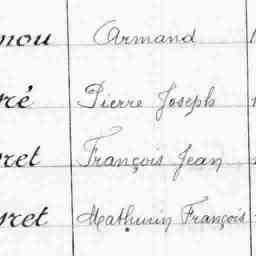 nou Armand
ré Pierre Joseph
ret François Jean
ret Mathurin François